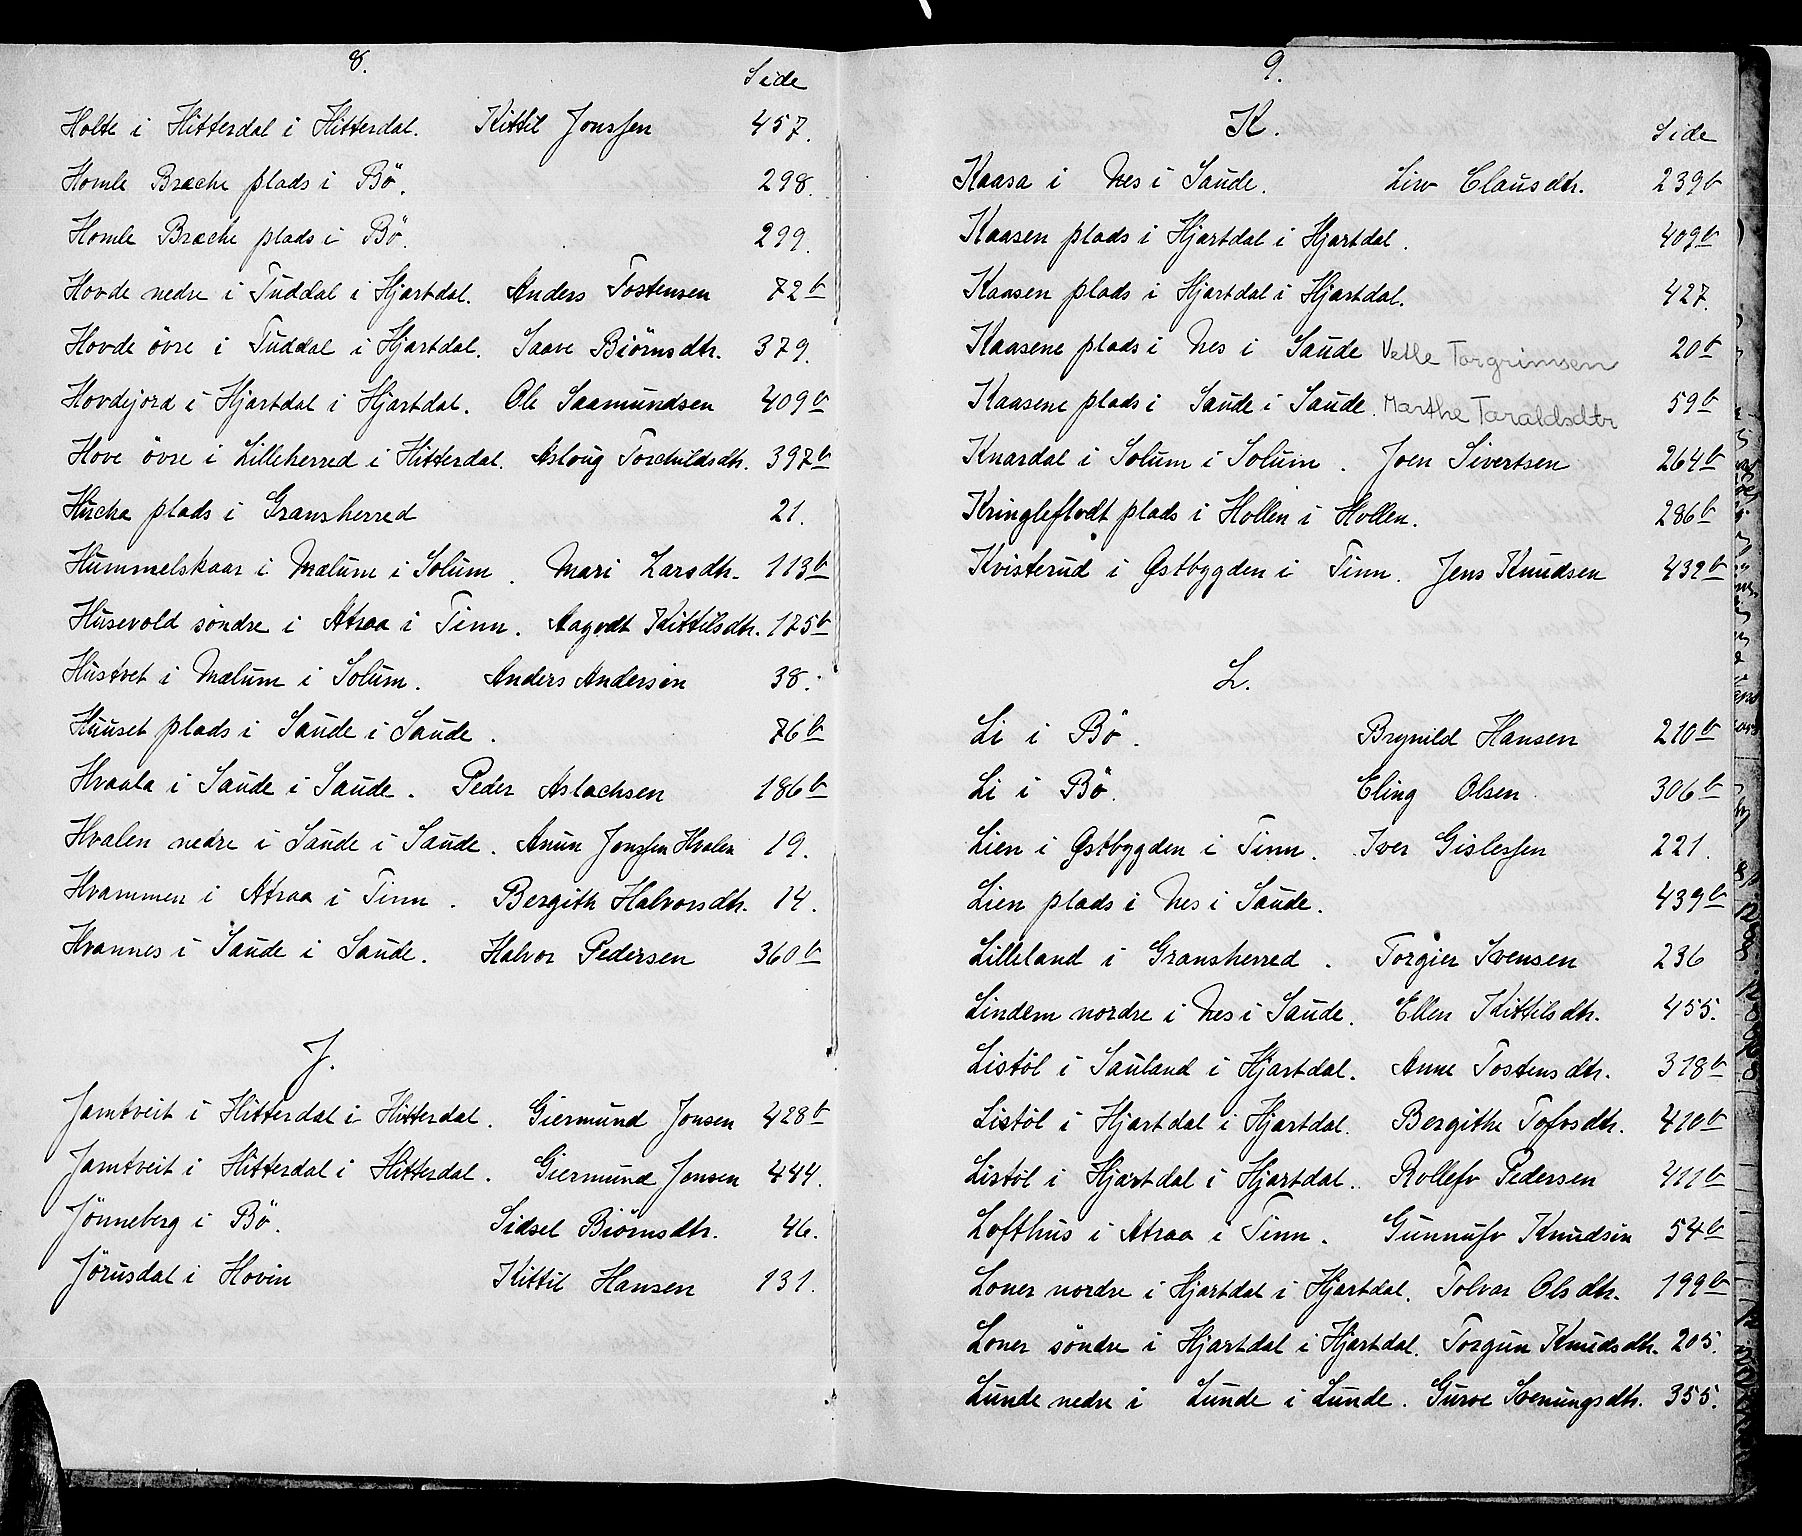 8.
Side
Holte i Hitterdal i Hitterdal. Kittil Jonssen 457.
Homle Bræche plads i Bö. 298.
Homle Bræche plads i Bö. 299.
Hovde nedre i Tuddal i Hjartdal. Anders Tostensen 72b
Hovde övre i Tuddal i Hjartdal. Saave Biörnsdtr. 379.
Hovdejord i Hjartdal i Hjartdal. Ole Saamundsen 409b
Hove övre i Lilleherred i Hitterdal. Asloug Torchildsdtr. 397b
Hucka plads i Gransherred 21.
Hummelskaar i Mælum i Solum. Mari Larsdtr. 113b
Husevold söndre i Atraa i Tinn. Aagodt Kittilsdtr. 175b
Hustvet i Mælum i Solum. Anders Andersen 38.
Huuset plads i Saude i Saude. 76b
Hvaala i Saude i Saude. Peder Aslachsen 186b
Hvalen nedre i Saude i Saude. Anun Jonssen Hvalen 19.
Hvammen i Atraa i Tinn. Bergith Halvorsdtr. 14.
Hvannes i Saude i Saude. Halvor Pedersen 360b
J.
Jamtveit i Hitterdal i Hitterdal. Giermund Jonsen 428b
Jamtveit i Hitterdal i Hitterdal. Giermund Jonsen 444.
Jönneberg i Bö. Sidsel Biörnsdtr. 46.
Jörusdal i Hovin Kittil Hansen 131.
9.
K.
Side
Kaasa i Nes i Saude. Liw Clausdtr. 239b
Kaasen plads i Hjartdal i Hjartdal. 409b
Kaasen plads i Hjartdal i Hjartdal. 427.
Kaasene plads i Nes i Saude Vetle Torgrimsen 20b
Kaasene plads i Saude i Saude. Marthe Taraldsdtr 59b
Knardal i Solum i Solum. Joen Sivertsen 264b
Kringleflodt plads i Hollen i Hollen. 286b
Kvisterud i Østbygden i Tinn. Jens Knudsen 432b
L.
Li i Bö. Brynild Hansen 210b
Li i Bö. Eling Olsen 306b
Lien i Østbygden i Tinn. Iver Gislessen 221.
Lien plads i Nes i Saude. 439b
Lilleland i Gransherred. Torgier Svensen 236
Lindem nordre i Nes i Saude. Ellen Kittilsdtr. 455.
Listöl i Sauland i Hjartdal. Anne Tostensdtr. 318b
Listöl i Hjartdal i Hjartdal. Bergithe Tofvsdtr. 410b
Listöl i Hjartdal i Hjartdal. Rollefv Pedersen 411b
Lofthus i Atraa i Tinn. Gunnufv Knudsen 54b
Loner nordre i Hjartdal i Hjartdal. Tolvar Olsdtr. 199b
Loner söndre i Hjartdal i Hjartdal. Torgun Knudsdtr. 205.
Lunde nedre i Lunde i Lunde. Guroe Svenungsdtr. 355.